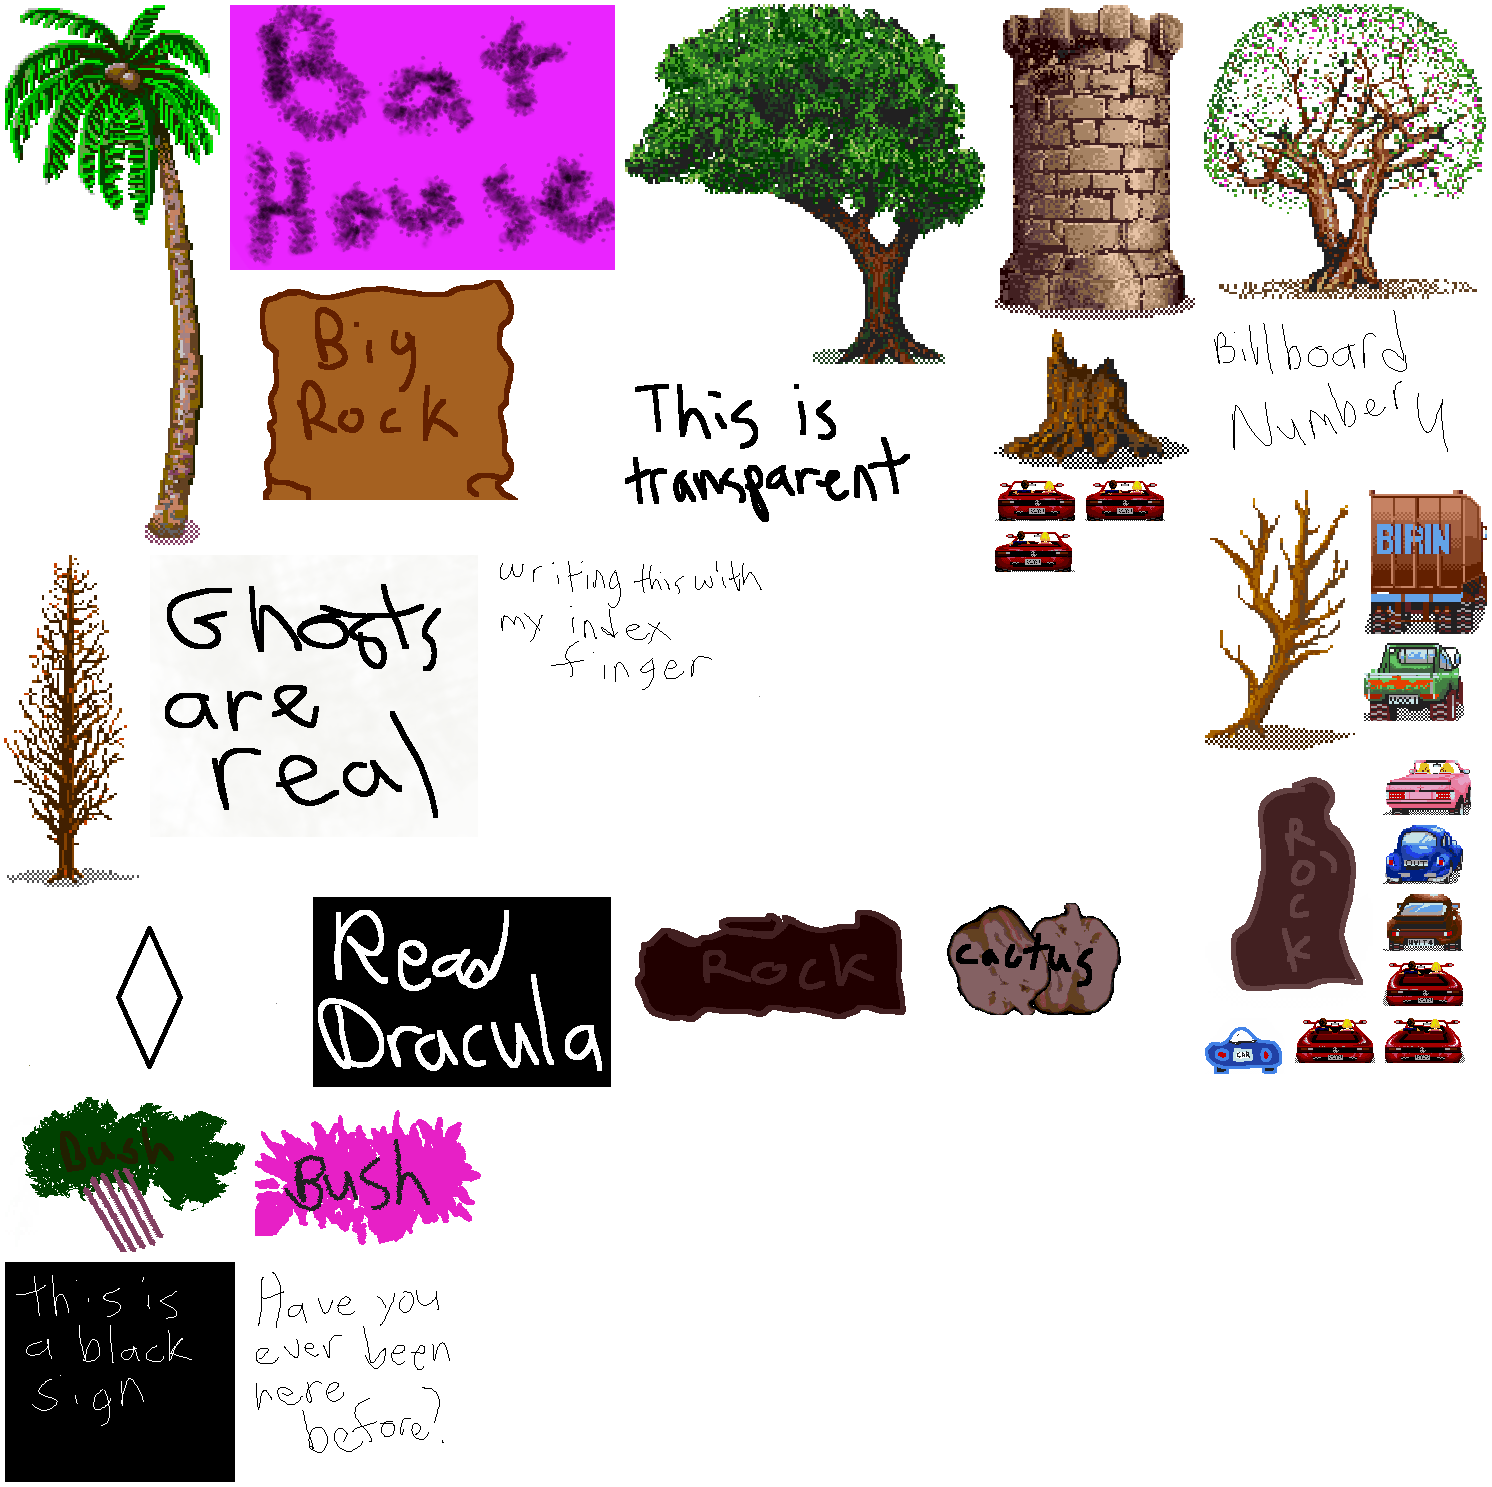 Bat
House
Big
Rock
This is
transparent
Billboard
Number 4
BIRIN
Ghosts
are
real
writing this with
my index
finger
Rock
Read
Dracula
Rock
cactus
CAR
Bush
Bush
this is
a black
sign
Have you
ever been
here
before?